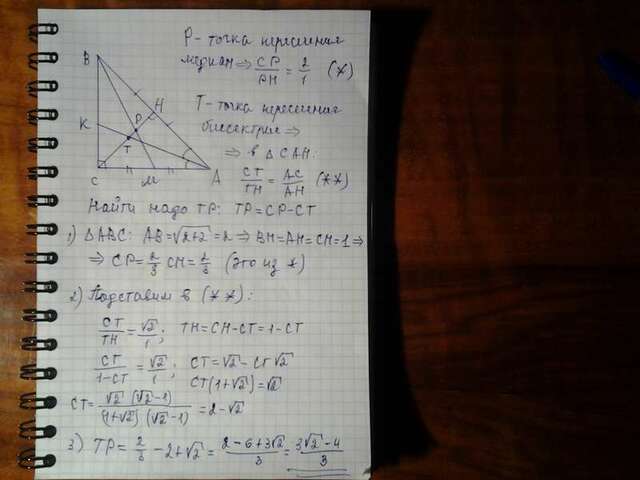 P - точка пересечения
медиан ⇒ CP/PH = 2/1 (*)
T - точка пересечения
биссектрис ⇒
⇒ в △CAH:
CT/TH = AC/AH (**)
B
H
K
P
T
C
M
A
Найти надо TP: TP = CP - CT
1) △ABC: AB = √(2+2) = 2 ⇒ BH = AH = CH = 1 ⇒
⇒ CP = 2/3 CH = 2/3 (это из *)
2) Подставим в (**):
CT/TH = √2/1; TH = CH - CT = 1 - CT
CT/(1-CT) = √2/1; CT = √2 - CT√2
CT(1+√2) = √2
CT = √2(√2-1)/((1+√2)(√2-1)) = 2-√2
3) TP = 2/3 - 2 + √2 = (2-6+3√2)/3 = (3√2-4)/3